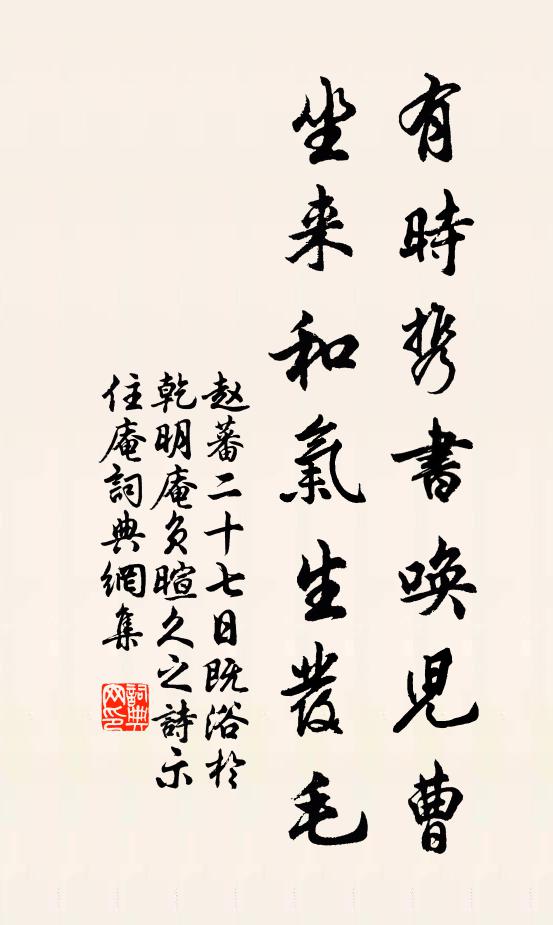 有時携書喚児曹
坐来和氣生發毛
赵蕃二十七日既浴於
乾明庵负暄久之詩示
住庵詞典網集
詞典
网印